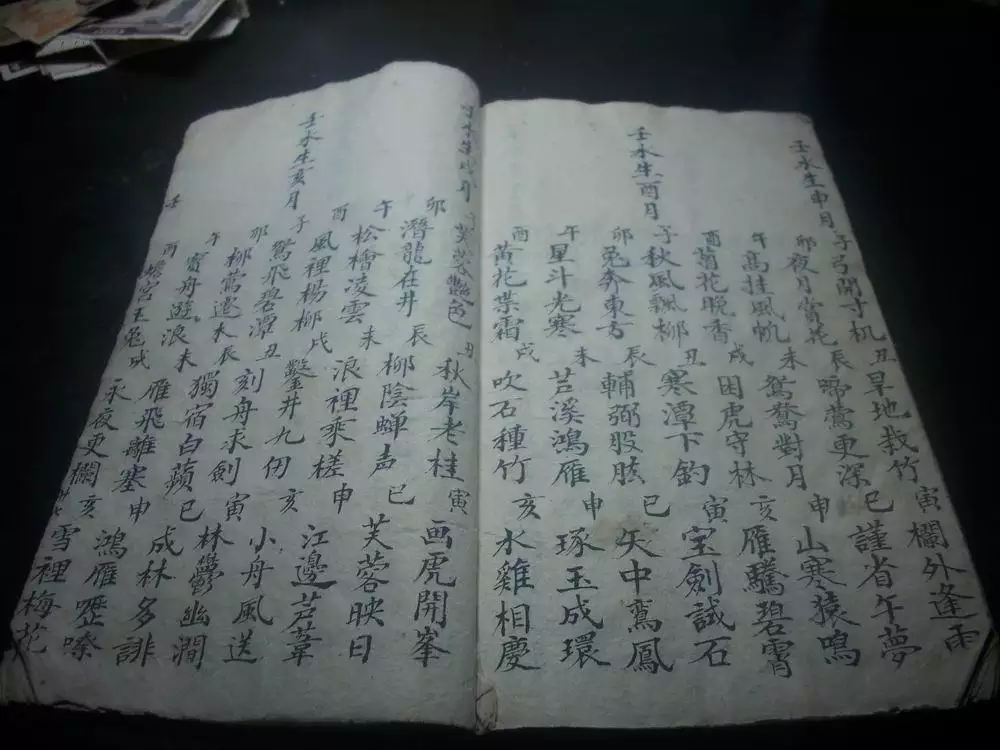 壬水生申月
子弓開寸机丑旱地栽竹寅欄外逢雨
卯夜月賞花辰啼鶯更深巳謹省午夢
午高挂風帆未鴛鴦對月申山寒猿鳴
酉菊花晚香戌困虎守林亥雁騰碧霄
壬水生酉月
子秋風飄柳丑寒潭下釣寅宝劍試石
卯兔奔東方辰輔弼股肱巳矢中鸞鳳
午星斗光寒未芦溪鴻雁申琢玉成環
酉黃花業霜戌吹石種竹亥水雞相慶
壬水生戌月
芙蓉艷色丑秋岸老桂寅画虎開峯
卯潛龍在井辰柳陰蝉声巳芙蓉映日
午松檜凌雲未浪裡乘槎申江邊芦葦
酉風裡楊柳戌鑿井九仞亥小舟風送
壬水生亥月
子鴛飛碧潭丑刻舟求劍寅林鬱幽澗
卯柳鶯遷木辰獨宿白蘋巳成林多誹
午賓舟遊浪未雁飛離塞申鴻雁嚦嗦
酉蟾宮玉兔戌永夜更欄亥雪裡梅花
壬